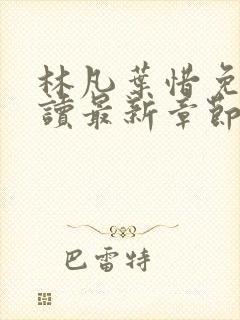 林凡葉惜免
讀最新章節
巴雷特